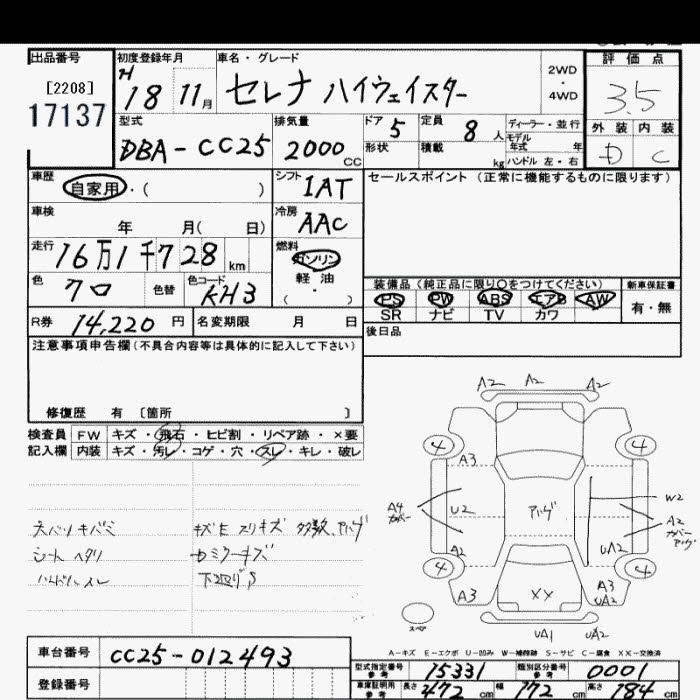 出品番号
[2208]
17137
初度登録年月
H 18 11月
車名・グレード
セレナ ハイウェイスター
2WD
・
4WD
評価点
3.5
外装 内装
D C
型式
DBA-CC25
排気量
2000 CC
ドア 5
形状
定員 8 人
積載 kg
ディーラー・並行
モデル
年式 年
ハンドル 左・右
車歴
自家用・( )
シフト
IAT
セールスポイント (正常に機能するものに限ります)
車検
年 月( 日)
冷房
AAC
走行
16万1千728 km
燃料
ガソリン
軽・油
( ・ )
色
クロ
色替
色コード
KH3
装備品(純正品に限り○をつけてください)
新車保証書
PS PW ABS エアB AW
SR ナビ TV カワ
有・無
R券 14,220 円
名変期限 月 日
後日品
注意事項申告欄(不具合内容等は具体的に記入して下さい)
修復歴 有 〔箇所 〕
検査員
記入欄
FW キズ・飛石・ヒビ割・リペア跡・×要
内装 キズ・汚レ・コゲ・穴・スレ・キレ・破レ
シート ヘタリ
ハンドル スレ
キズE スリキズ 多数、アバグ
下廻りS
A2 A2 A2
4 4
A3
A4
カバー
U2
アバグ
W2
A2
カバー
アバグ
A2
UA2
4 4
A3
XX
A3
UA2
スペア
UA1 UA2
A-キズ E-エクボ U-凹み W-補修跡 S-サビ C-腐食 XX-交換済
車台番号 CC25-012493
登録番号
型式指定番号
参考
15331
類別区分番号
参考
0001
車庫証明用
参考
長さ 472 cm
幅 172 cm
高さ 184 cm